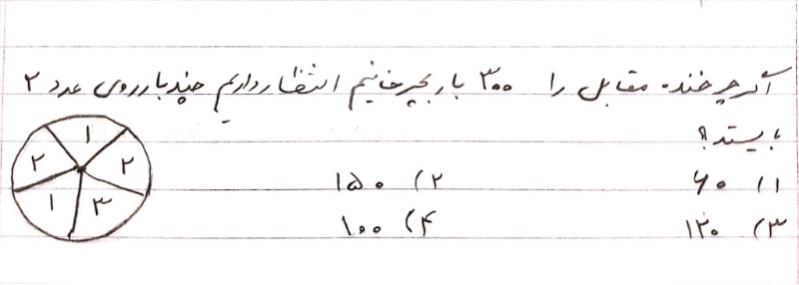 اگر چرخنده مقابل را ۳۰۰ بار بچرخانیم انتظار داریم چند بار روی عدد ۲
بایستد؟
۱) ۶۰ ۲) ۱۵۰
۳) ۱۲۰ ۴) ۱۰۰
۱
۲ ۲
۱ ۳